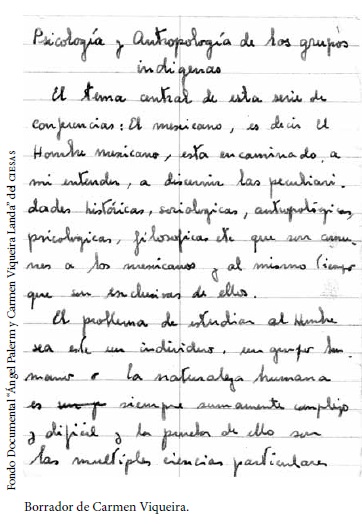 Psicología y Antropología de los grupos
indigenas
El tema central de esta serie de
conferencias: El mexicano, es decir El
Hombre mexicano, esta encaminado, a
mi entender, a discernir las peculiari-
dades históricas, sociologicas, antropológicas,
psicologicas, filosoficas etc que son comu-
nes a los mexicanos y al mismo tiempo
que son exclusivas de ellos.
El problema de estudiar al Hombre
sea este un individuo, un grupo hu-
mano o la naturaleza humana
es siempre sumamente complejo
y dificil y la prueba de ello son
las multiples ciencias particulares
Fondo Documental "Ángel Palerm y Carmen Viqueira Landa" del CIESAS
Borrador de Carmen Viqueira.